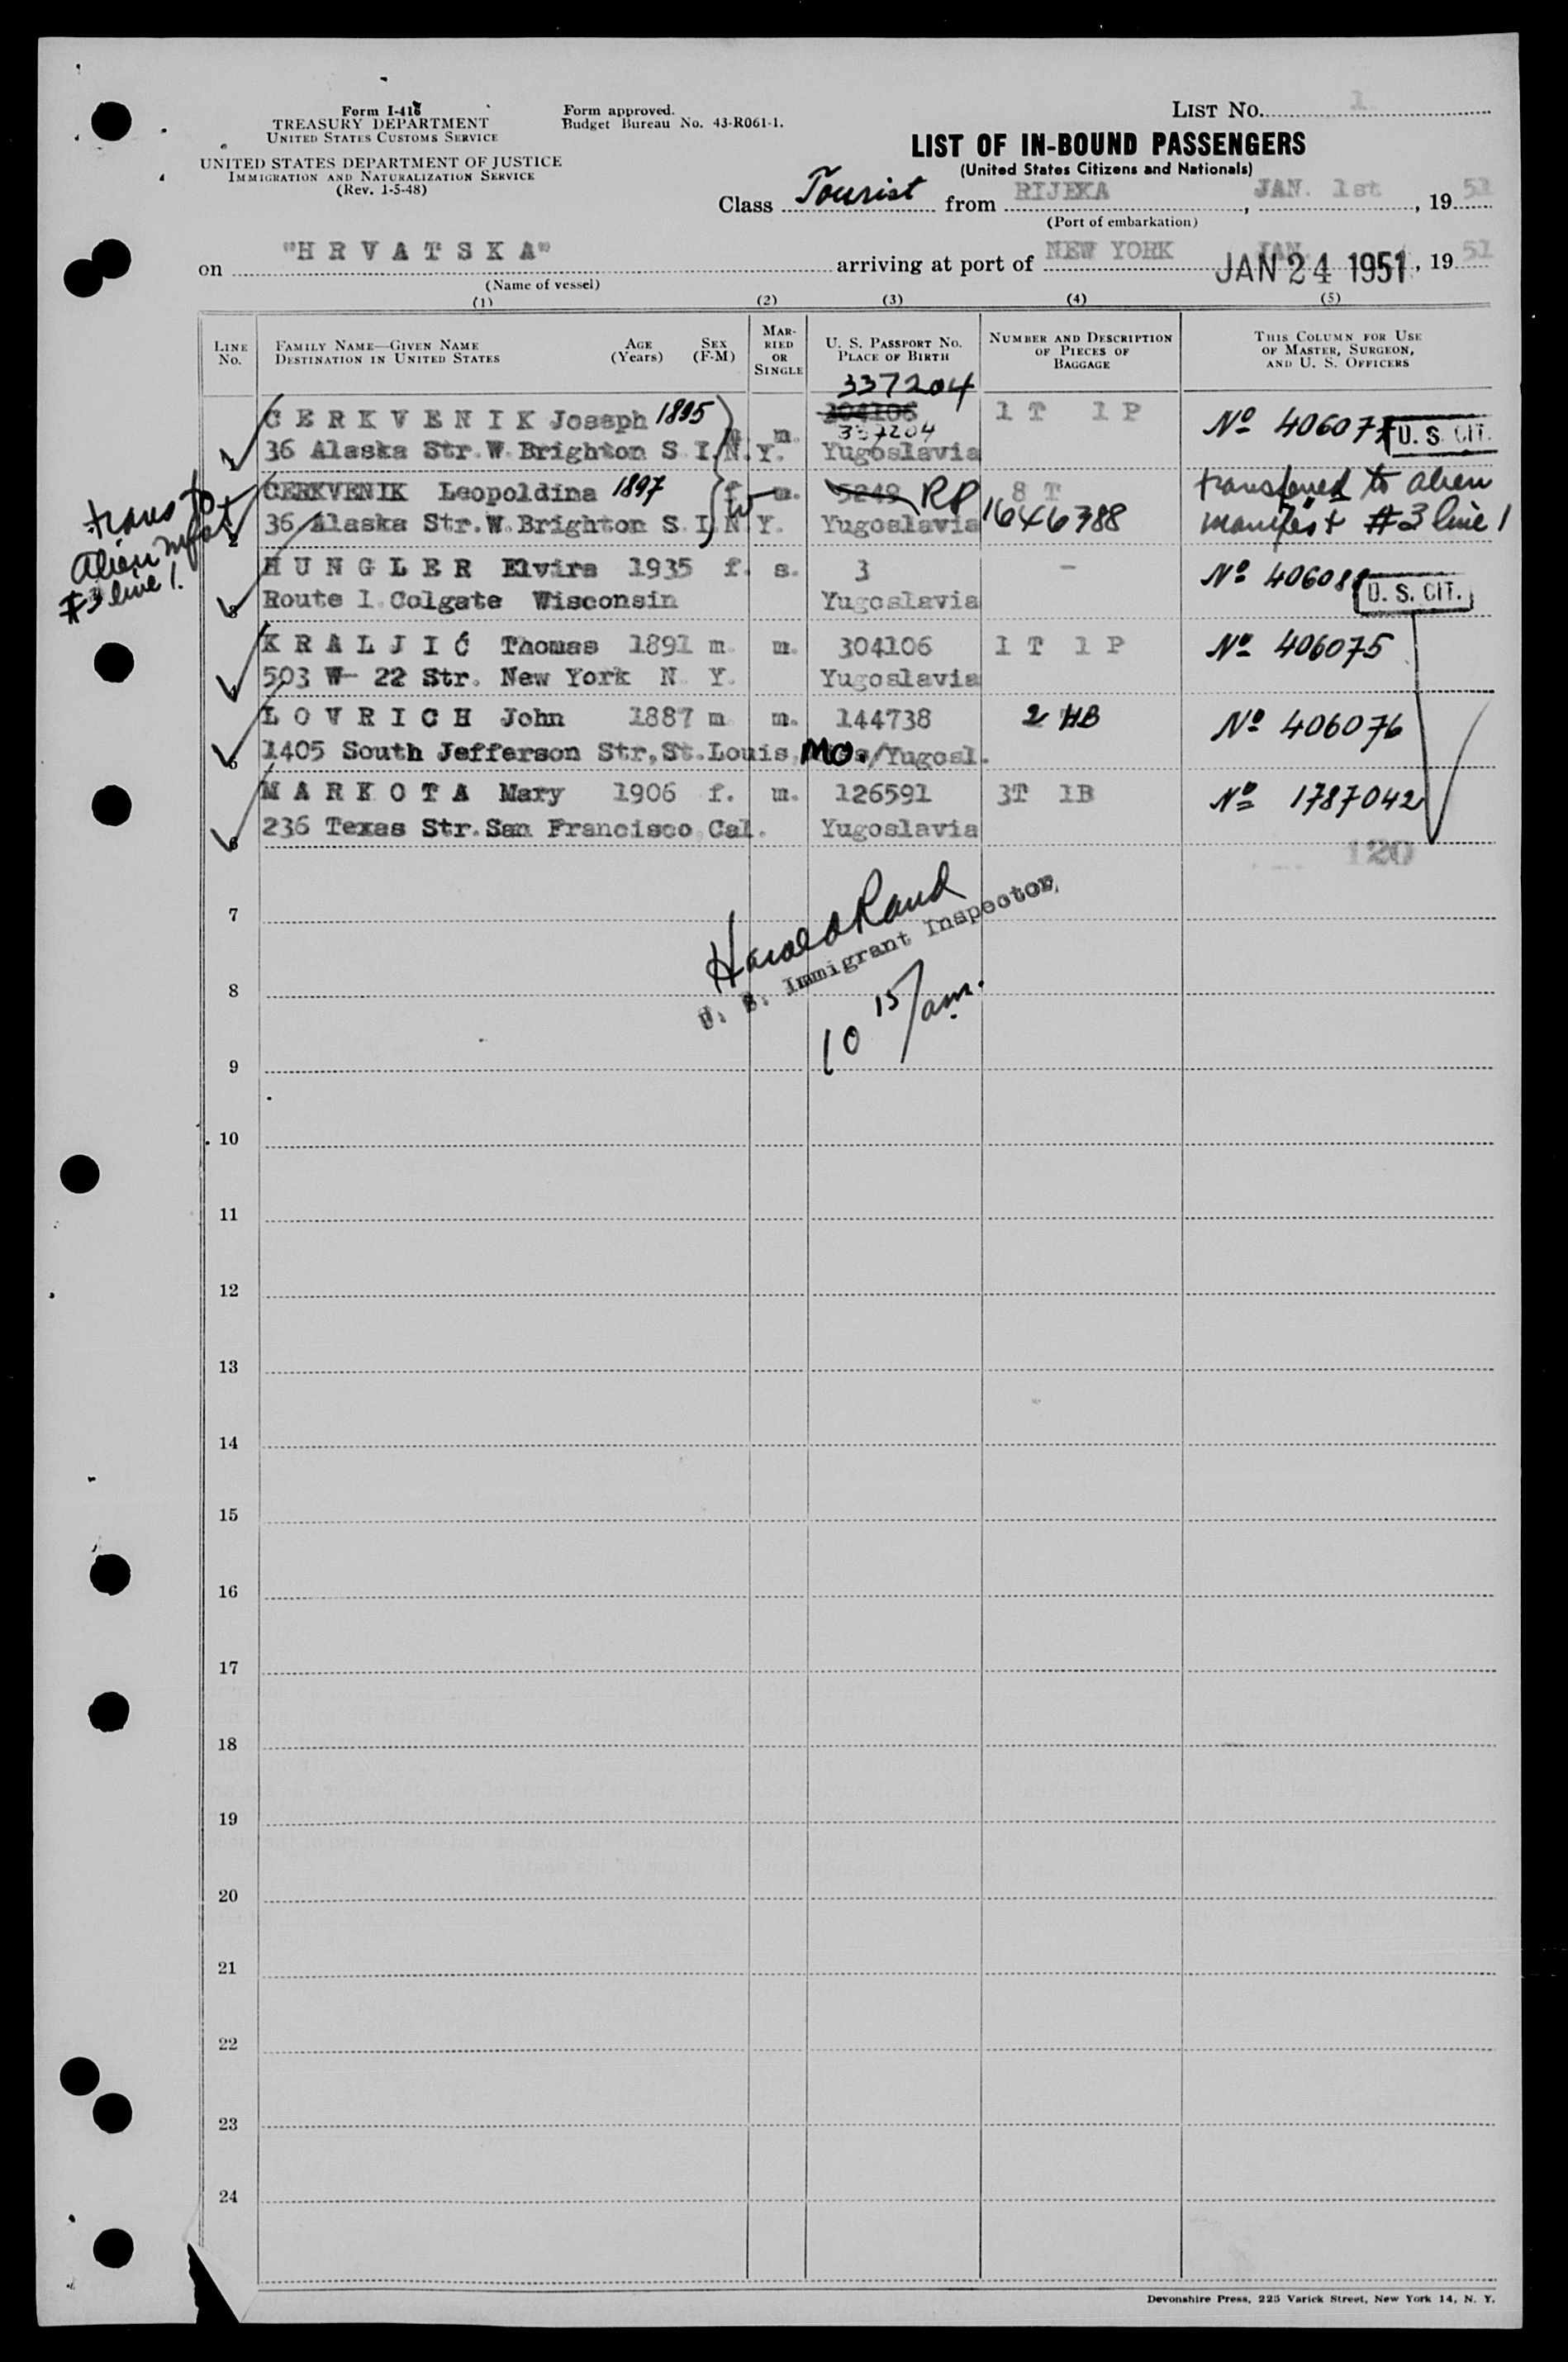 Form I-416
TREASURY DEPARTMENT
UNITED STATES CUSTOMS SERVICE
UNITED STATES DEPARTMENT OF JUSTICE
IMMIGRATION AND NATURALIZATION SERVICE
(Rev. 1-5-48)
Form approved.
Budget Bureau No. 43-R061-1.
LIST No. 1
LIST OF IN-BOUND PASSENGERS
(United States Citizens and Nationals)
Class Tourist from RIJEKA, JAN. 1st, 19 51
(Port of embarkation)
on "H R V A T S K A" arriving at port of NEW YORK JAN. JAN 24 1951, 19 51
(Name of vessel)
(1) (2) (3) (4) (5)
LINE No. FAMILY NAME—GIVEN NAME DESTINATION IN UNITED STATES AGE (Years) SEX (F-M) MARRIED OR SINGLE U. S. PASSPORT No. PLACE OF BIRTH NUMBER AND DESCRIPTION OF PIECES OF BAGGAGE THIS COLUMN FOR USE OF MASTER, SURGEON, AND U. S. OFFICERS
337204
C E R K V E N I K Joseph 1895 m. m. 304106 1 T 1 P Nº 406077 U. S. CIT.
337204
1 36 Alaska Str. W. Brighton S. I. N. Y. Yugoslavia
CERKVENIK Leopoldina 1897 f. m. W 5249 RP 8 T transferred to alien
2 36 Alaska Str. W. Brighton S. I. N Y. Yugoslavia 1646388 manifest #3 line 1
trans to
alien mfst
#3 line 1.
H U N G L E R Elvira 1935 f. s. 3 - Nº 406088 U. S. CIT.
3 Route 1. Colgate Wisconsin Yugoslavia
K R A L J I Ć Thomas 1891 m. m. 304106 1 T 1 P Nº 406075
4 503 W- 22 Str. New York N. Y. Yugoslavia
L O V R I C H John 1887 m m. 144738 2 HB Nº 406076
5 1405 South Jefferson Str, St. Louis, MO. /Yugosl.
M A R K O T A Mary 1906 f. m. 126591 3T 1B Nº 1787042
6 236 Texas Str. San Francisco, Cal. Yugoslavia
120
7
Harold Rand
U. S. Immigrant Inspector,
8
10 15/am.
9
10
11
12
13
14
15
16
17
18
19
20
21
22
23
24
Devonshire Press, 225 Varick Street, New York 14, N. Y.